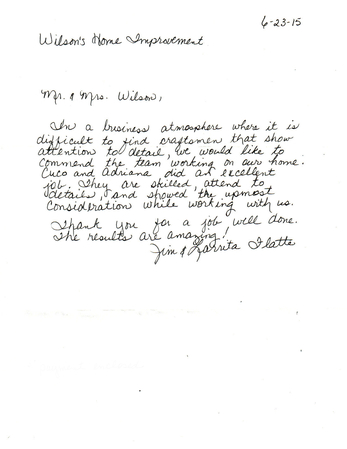 6-23-15
Wilson's Home Improvement
Mr. & Mrs. Wilson,
In a business atmosphere where it is
difficult to find craftsmen that show
attention to detail, we would like to
commend the team working on our home.
Cuco and Adriana did an excellent
job. They are skilled, attend to
details, and showed the upmost
consideration while working with us.
Thank you for a job well done.
The results are amazing!
Jim &